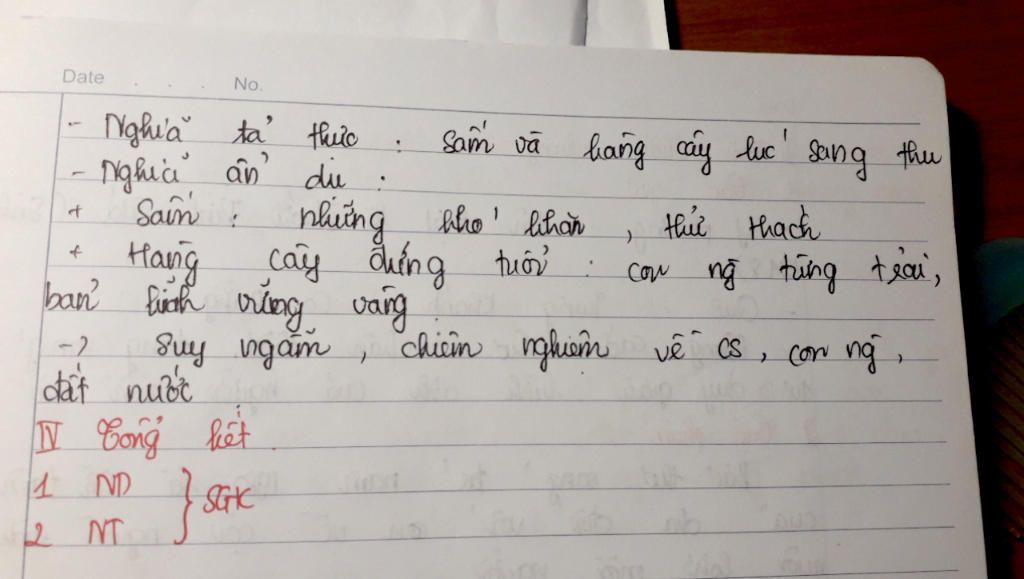 Date . . . No.
- Nghĩa tả thực : Sấm và hàng cây lúc sang thu
- Nghĩa ẩn dụ :
+ Sấm : những khó khăn , thử thách
+ Hàng cây đứng tuổi : con ng từng trải,
bản lĩnh vững vàng
-> Suy ngẫm , chiêm nghiệm về cs , con ng ,
đất nước
IV Tổng kết .
1 ND } SGK
2 NT